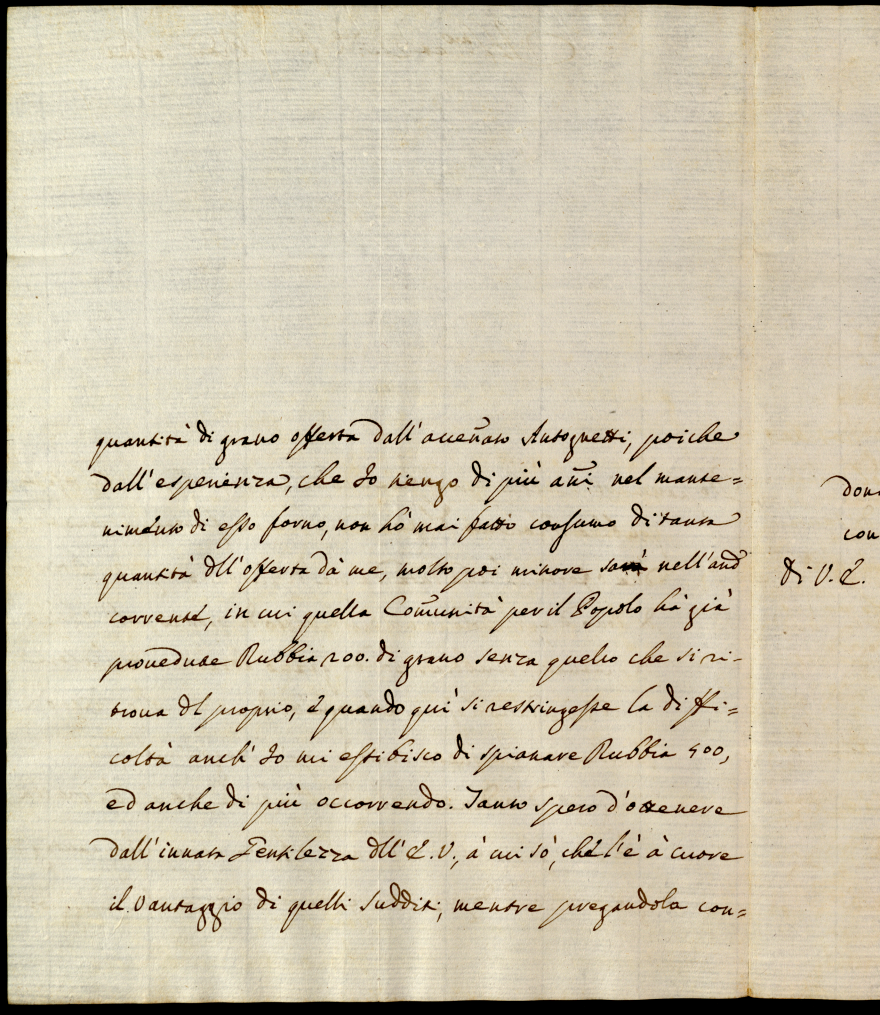 quantità di grano offerta dall'acceñato Antognetti, poiche
dall'esperienza, che Io tengo di più añi nel mante=
nimento di esso forno, non hò mai fatto consumo di tanta
quantità dll'offerta dà me, molto poi minore sarà nell'anō
corrente, in cui quella Com̃unità per il Popolo hà già
provedute Rubbia 200. di grano senza quello che si ri-
trova dl proprio, e quando qui si restringesse la diffi=
coltà anch' Io mi essibisco di spianare Rubbia 400,
ed anche di più occorrendo. Tanto spero d'ottenere
dall'innata Gentilezza dll'E.V., à cui sò, che l'è à cuore
il Vantaggio di quelli sudditi, mentre pregandola con=
dono
con
di V.E.